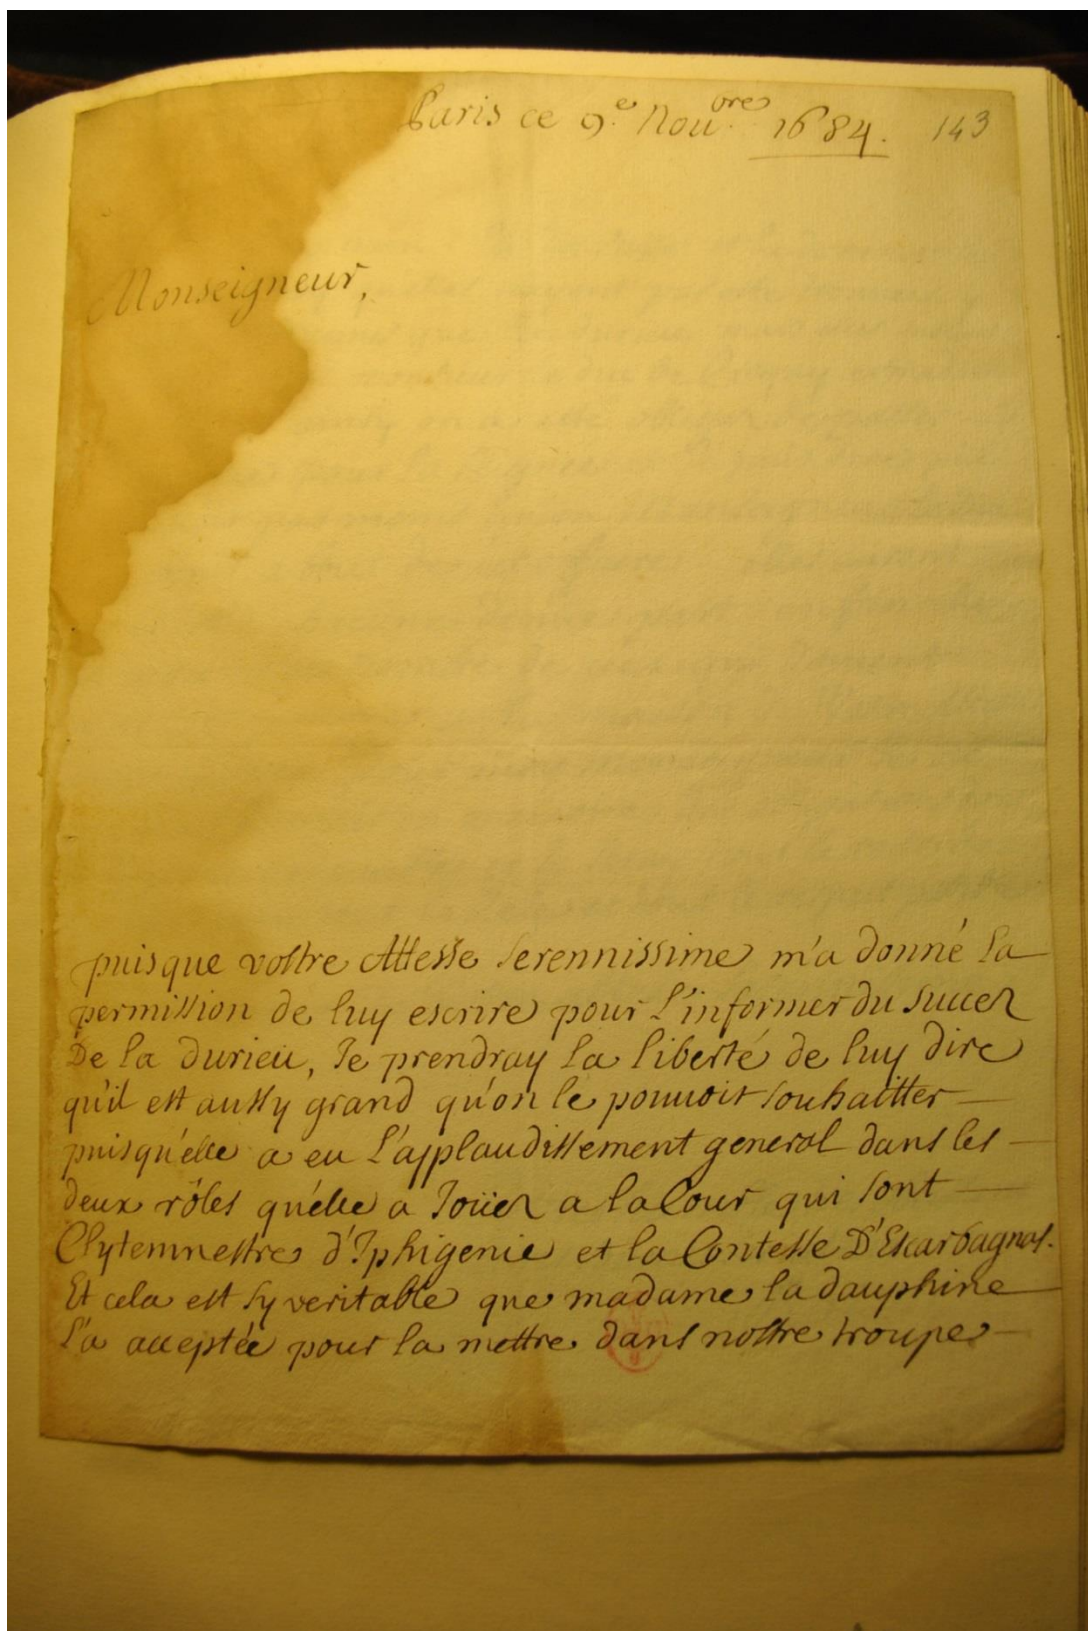 Paris ce 9.e Nou.bre 1684. 143
Monseigneur,
puisque vostre Altesse Serennissime m'a donné la
permission de luy escrire pour l'informer du succez
De la durieu, Je prendray la liberté de luy dire
qu'il est aussy grand qu'on le pouuoit souhaitter
puisqu'elle a eu l'applaudissement general dans les
deux rôles qu'elle a Joüez a la Cour qui sont
Clytemnestre d'Iphigenie et la Contesse D'Escarbagnas.
Et cela est sy veritable que madame la dauphine
l'a acceptée pour la mettre dans nostre troupe